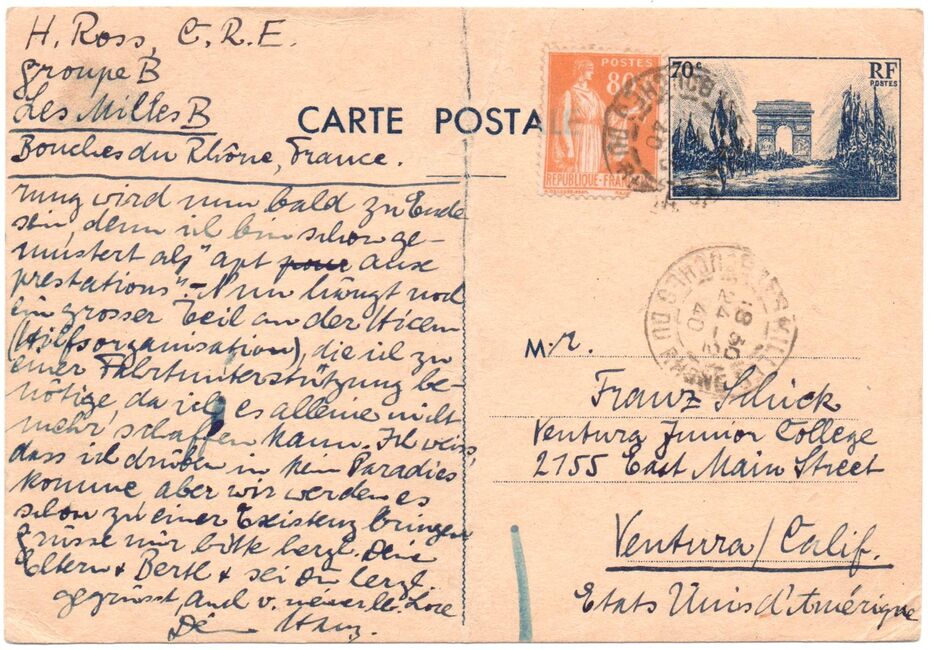 H. Ross, C.R.E.
groupe B
Les Milles B
Bouches du Rhône, France.
CARTE POSTALE
POSTES
80c
REPUBLIQUE-FRANC
70c
RF
POSTES
rung wird nun bald zu Ende
sein, denn ich bin schon ge-
mustert als "apt pour aux
prestations". - Nun hängt noch
ein grosser Teil an der Hicem
(Hilfsorganisation), die ich zu
einer Fahrtunterstützung be-
nötige, da ich es alleine nicht
mehr schaffen kann. Ich weiss,
dass ich drüben in kein Paradies
komme aber wir werden es
schon zu einer Existenz bringen
Grüsse mir bitte herzl. Deine
Eltern + Bertl + sei Du herzl.
gegrüsst, auch v.
18 30
24 - 2
40
Mr.
Franz Schick
Ventura Junior College
2155 East Main Street
Ventura / Calif.
Etats Unis d'Amérique